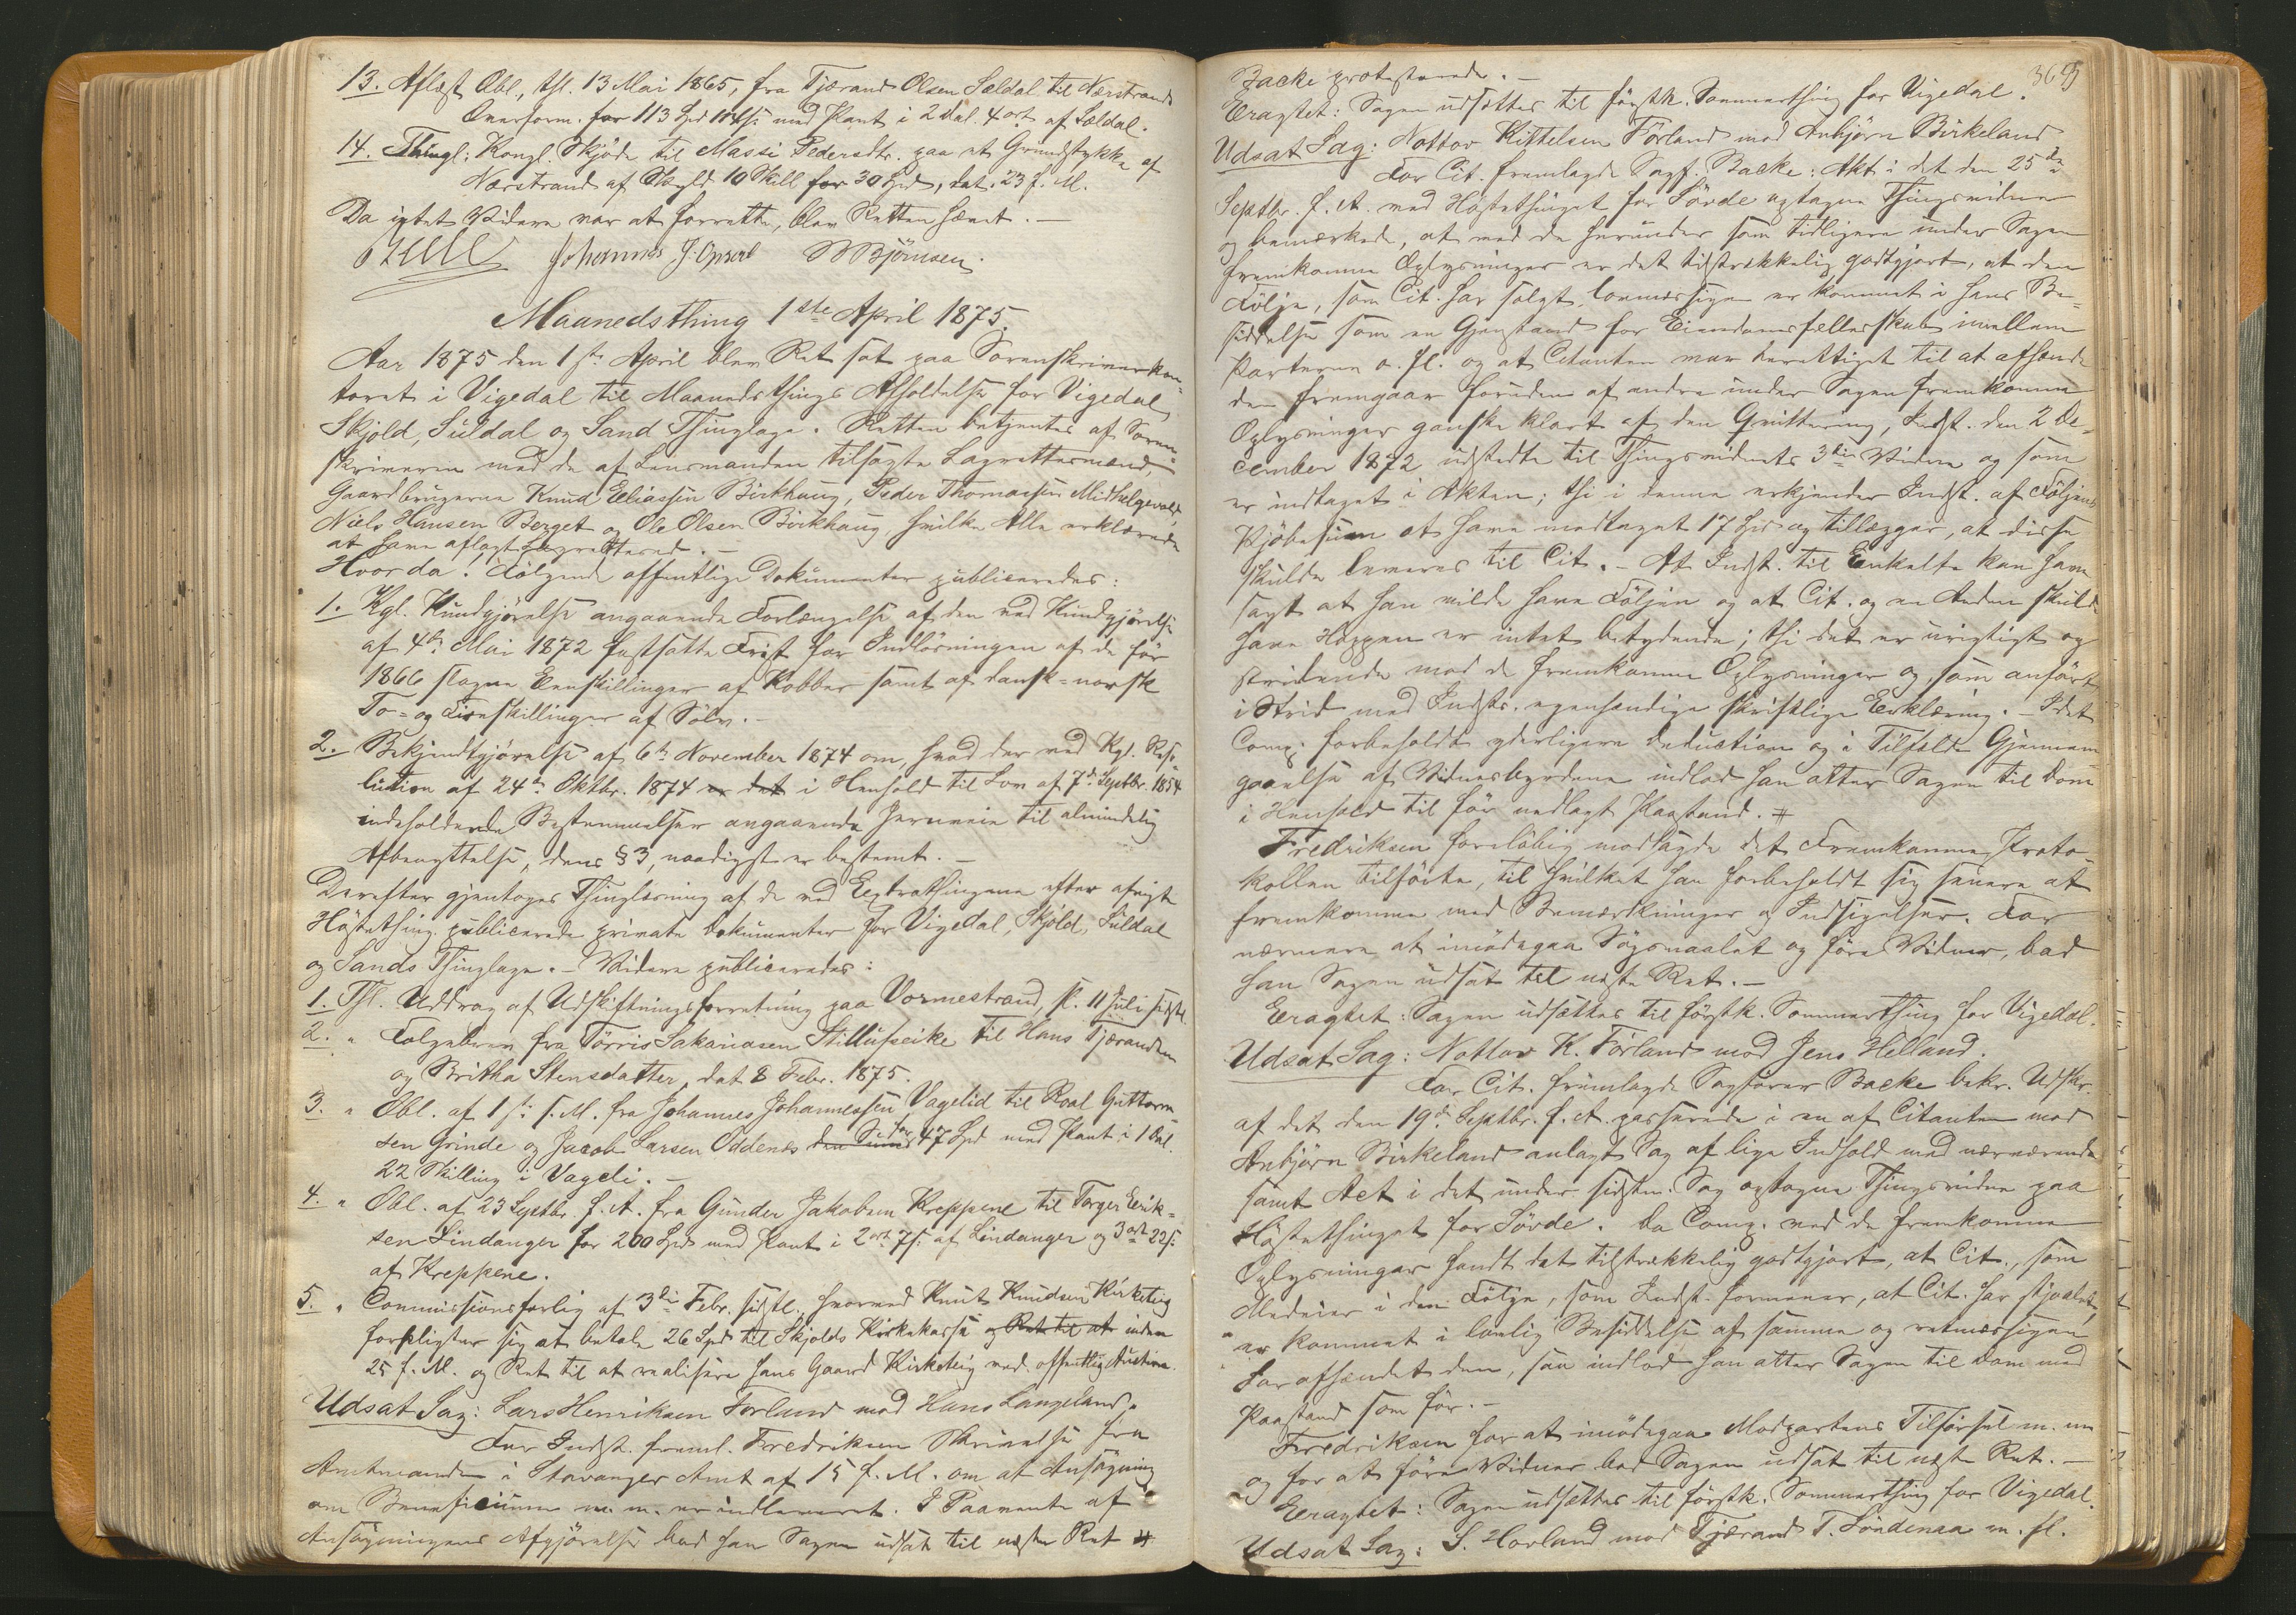 13. Aflæst Obl., thl. 13 Mai 1865, fra Tjærand Olsen Sældal til Nærstrands
Overform. for 113 Spd med Pant i 2 Dal. 4 ort af Sældal.
14. Thingl: Kongl. Skjøde til Massi Pedersdtr. paa et Grundstykke af
Nærstrand af Skyld 10 Skill for 30 Spd, dat. 23 f. M.
Da intet Videre var at forrette, blev Retten hævet. –
Johannes J. Opsal B Bjørnsen.
Maanedsthing 1ste April 1875.
Aar 1875 den 1ste April blev Ret sat paa Sorenskriverkon-
toret i Vigedal til Maanedsthings Afholdelse for Vigedal,
Skjold, Suldal og Sand Thinglage. Retten betjentes af Soren-
skriveren med de af Lensmanden tilsagte Lagrettesmænd,
Gaardbrugerne Knud Eliassen Birkhaug, Peder Thomassen Midthelgevold,
Niels Hansen Berget og Ole Olsen Birkhaug, hvilke Alle erklærede
at have aflagt Lagretteed. –
Hvorda! Følgende offentlige Dokumenter publiceredes:
1. Kgl. Kundgjørelse angaaende Forlængelse af den ved Kundgjørelse
af 4de Mai 1872 fastsatte Frist for Indløsningen af de før
1866 slagne Eenskillinger af Kobber samt af dansk-norsk
To- og Fireskillinger af Sølv. –
2. Bekjendtgjørelse af 6te November 1874 om, hvad der ved Kgl. Reso-
lution af 24de Oktbr. 1874 er det i Henhold til Lov af 7de Septbr. 1854
indeholdende Bestemmelser angaaende Jernveie til almindelig
Afbenyttelse, dens § 3, naadigst er bestemt. –
Derefter gjentoges Thinglæsning af de ved Extrathingene efter afvigte
Høstething publicerede private Dokumenter for Vigedal, Skjold, Suldal
og Sands Thinglage. – Videre publiceredes:
1. Thl. Uddrag af Udskiftningsforretning paa Vormestrand, sl. 11 Juli sidstl.
2. " Følgebrev fra Tørris Sakariasen Stilluseike til Hans Tjærandsen
og Britha Stensdatter, dat 8 Febr. 1875.
3. " Obl. af 1ste f. M. fra Johannes Johannessen Vagelid til Roal Guttorm-
sen Grinde og Jacob Larsen Oddenes den Sum for 47 Spd med Pant i 1 Dal.
22 Skilling i Vageli. –
4. " Obl. af 23 Septbr. f. A. fra Gunder Jakobsen Kreppene til Torger Erik-
sen Lindanger for 200 Spd med Pant i 2 ort 7 s. af Lindanger og 3 ort 22 s.
af Kreppene.
5. " Commissionsforlig af 3die Febr. sidstl., hvorved Knut Knudsen Kirketeig
forpligter sig at betale 26 Spd til Skjolds Kirkekasse og Ret til at inden
25 f. M. og Ret til at realisere hans Gaard Kirketeig ved offentlig Auction.
Udsat Sag: Lars Henriksen Førland mod Hans Langeland.
For Indst. freml. Fredriksen Skrivelse fra
Amtmanden i Stavanger Amt af 15 f. M. om at Ansøgning
om Beneficium m. m. er indleveret. I Paavente af
Ansøgningens Afgjørelse bad han Sagen udsat til næste Ret #
369
Backe protesterede. –
Eragtet: Sagen udsættes til førstk. Sommerthing for Vigedal.
Udsat Sag: Nottov Kittelsen Førland mod Anbjørn Birkeland
For Cit. fremlagde Sagf. Backe: Akt i det den 25de
Septbr. f. A. ved Høstethinget for Søvde optagne Thingsvidne
og bemærkede, at med de herunder som tidligere under Sagen
fremkomne Oplysninger er det tilstrækkelig godtgjort, at den
Følje, som Cit. har solgt lovmæssigen er kommet i hans Be-
siddelse som en Gjenstand for Eiendomsfellesskab imellem
Parterne o. fl. og at Citanten var berettiget til at afhænde
den fremgaar foruden af andre under Sagen fremkomne
Oplysninger ganske klart af den Qvittering, Indst. den 2 De-
cember 1872 udstedte til Thingsvidnets 3die Vidne og som
er indtaget i Akten; thi i denne erkjender Indst. af Føljens
Kjøbesum at have modtaget 17 Spd og tillægger, at disse
skulde leveres til Cit. – At Indst. til Enkelte kan have
sagt at han vilde have Føljen og at Cit. og en Anden skulde
have Hoppen er intet betydende; thi det er urigtigt og
stridende mod de fremkomne Oplysninger og, som anført
i Strid med Indsts. egenhændige skriftlige Erklæring. – Idet
Comp. forbeholdt yderligere Deduction og i Tilfælde Gjennem-
gaaelse af Vidnesbyrdene indlod han atter Sagen til Dom
i Henhold til før nedlagt Paastand. #
Fredriksen foreløbig modsagde det Fremkomne Proto-
kollen tilførte, til hvilket han forbeholdt sig senere at
fremkomme med Bemærkninger og Indsigelser. For
nærmere at imødegaa Søgsmaalet og føre Vidner, bad
han Sagen udsat til næste Ret. –
Eragtet: Sagen udsættes til førstk. Sommerthing for Vigedal.
Udsat Sag: Nottov K. Førland mod Jens Helland.
For Cit. fremlagde Sagfører Backe bekr. Udskr.
af det den 19de Septbr. f. A. passerede i en af Citanten mod
Anbjørn Birkeland anlagt Sag af lige Indhold med nærværende
samt Act i det under sidstn. Sag optagne Thingsvidne paa
Høstethinget for Søvde. Da Comp. ved de fremkomne
Oplysninger fandt det tilstrækkelig godtgjort, at Cit., som
Medeier i den Følje, som Indst. formener, at Cit. har stjaalet,
er kommet i lovlig Besiddelse af samme og retmæssigen
har afhændet den, saa indlod han atter Sagen til Dom med
Paastand som før. –
Fredriksen for at imødegaa Modpartens Tilførsel m. m
og for at føre Vidner bad Sagen udsat til næste Ret. –
Eragtet: Sagen udsættes til førstk. Sommerthing for Vigedal.
Udsat Sag: S. Hovland mod Tjærand T. Søndenaa m. fl.